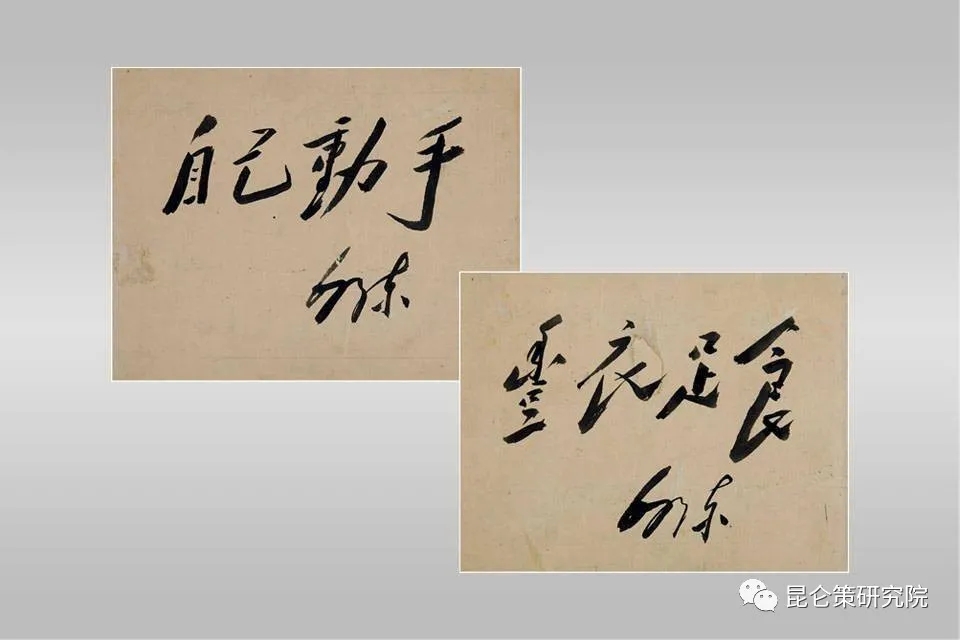 自己動手
泽东
豐衣足食
泽东
昆仑策研究院